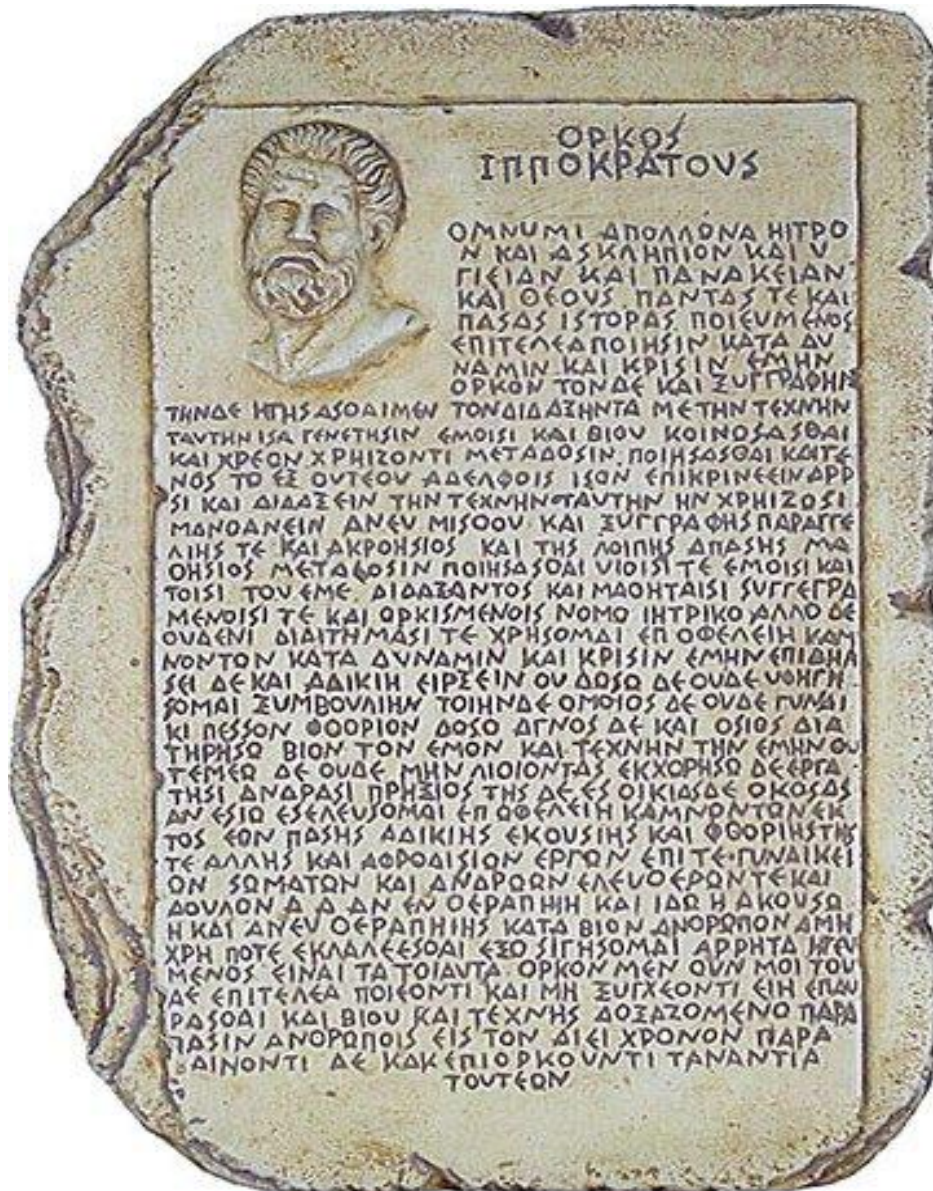 ΟΡΚΟS
ΙΠΠΟΚΡΑΤΟΥS
ΟΜΝUΜΙ ΑΠΟΛΛΩΝΑ ΗΙΤΡΟ
Ν ΚΑΙ ΑSΚΛΗΠΙΟΝ ΚΑΙ U
ΓΙΕΙΑΝ ΚΑΙ ΠΑΝΑΚΕΙΑΝ
ΚΑΙ ΘΕΟΥS ΠΑΝΤΑS ΤΕ ΚΑΙ
ΠΑSΑS ΙSΤΟΡΑS ΠΟΙΕΥΜΕΝΟS
ΕΠΙΤΕΛΕΑ ΠΟΙΗSΙΝ ΚΑΤΑ ΔΥ
ΝΑΜΙΝ ΚΑΙ ΚΡΙSΙΝ ΕΜΗΝ
ΟΡΚΟΝ ΤΟΝΔΕ ΚΑΙ ΞΥΓΓΡΑΦΗΝ
ΤΗΝΔΕ ΗΓΗSΑSΘΑΙ ΜΕΝ ΤΟΝ ΔΙΔΑΞΗΝΤΑ ΜΕ ΤΗΝ ΤΕΧΝΗΝ
ΤΑΥΤΗΝ ΙSΑ ΓΕΝΕΤΗSΙΝ ΕΜΟΙSΙ ΚΑΙ ΒΙΟΥ ΚΟΙΝΩSΑSΘΑΙ
ΚΑΙ ΧΡΕΩΝ ΧΡΗΙΖΟΝΤΙ ΜΕΤΑΔΟSΙΝ ΠΟΙΗSΑSΘΑΙ ΚΑΙ ΓΕ
ΝΟS ΤΟ ΕΞ ΟΥΤΕΟΥ ΑΔΕΛΦΟΙS ΙSΟΝ ΕΠΙΚΡΙΝΕΕΙΝ ΑΡΡ
SΙ ΚΑΙ ΔΙΔΑΞΕΙΝ ΤΗΝ ΤΕΧΝΗΝ ΤΑΥΤΗΝ ΗΝ ΧΡΗΙΖΩSΙ
ΜΑΝΘΑΝΕΙΝ ΑΝΕΥ ΜΙSΘΟΥ ΚΑΙ ΞΥΓΓΡΑΦΗS ΠΑΡΑΓΓΕ
ΛΙΗS ΤΕ ΚΑΙ ΑΚΡΟΗSΙΟS ΚΑΙ ΤΗS ΛΟΙΠΗS ΑΠΑSΗS ΜΑ
ΘΗSΙΟS ΜΕΤΑΔΟSΙΝ ΠΟΙΗSΑSΘΑΙ ΥΙΟΙSΙ ΤΕ ΕΜΟΙSΙ ΚΑΙ
ΤΟΙSΙ ΤΟΥ ΕΜΕ ΔΙΔΑΞΑΝΤΟS ΚΑΙ ΜΑΘΗΤΑΙSΙ SΥΓΓΕΓΡΑ
ΜΕΝΟΙSΙ ΤΕ ΚΑΙ ΩΡΚΙSΜΕΝΟΙS ΝΟΜΩ ΙΗΤΡΙΚΟ ΑΛΛΟ ΔΕ
ΟΥΔΕΝΙ ΔΙΑΙΤΗΜΑSΙ ΤΕ ΧΡΗSΟΜΑΙ ΕΠ ΟΦΕΛΕΙΗ ΚΑΜ
ΝΟΝΤΩΝ ΚΑΤΑ ΔΥΝΑΜΙΝ ΚΑΙ ΚΡΙSΙΝ ΕΜΗΝ ΕΠΙ ΔΗΛ
SΕΙ ΔΕ ΚΑΙ ΑΔΙΚΙΗ ΕΙΡΞΕΙΝ ΟΥ ΔΩSΩ ΔΕ ΟΥΔΕ ΥΦΗΓΗ
SΟΜΑΙ ΞΥΜΒΟΥΛΙΗΝ ΤΟΙΗΝΔΕ ΟΜΟΙΟS ΔΕ ΟΥΔΕ ΓΥΝΑΙ
ΚΙ ΠΕSSΟΝ ΦΘΟΡΙΟΝ ΔΩSΟ ΑΓΝΟS ΔΕ ΚΑΙ ΟSΙΟS ΔΙΑ
ΤΗΡΗSΩ ΒΙΟΝ ΤΟΝ ΕΜΟΝ ΚΑΙ ΤΕΧΝΗΝ ΤΗΝ ΕΜΗΝ ΟΥ
ΤΕΜΕΩ ΔΕ ΟΥΔΕ ΜΗΝ ΛΙΘΙΟΝΤΑS ΕΚΧΟΡΗSΩ ΔΕ ΕΡΓΑ
ΤΗSΙ ΑΝΔΡΑSΙ ΠΡΗΞΙΟS ΤΗS ΔΕ ΕS ΟΙΚΙΑSΔΕ ΟΚΟSΑS
ΑΝ ΕSΙΩ ΕSΕΛΕΥSΟΜΑΙ ΕΠ ΩΦΕΛΕΙΗ ΚΑΜΝΟΝΤΩΝ ΕΚ
ΤΟS ΕΩΝ ΠΑSΗS ΑΔΙΚΙΗS ΕΚΟΥSΙΗS ΚΑΙ ΦΘΟΡΙΗS ΤΗS
ΤΕ ΑΛΛΗS ΚΑΙ ΑΦΡΟΔΙSΙΩΝ ΕΡΓΩΝ ΕΠΙ ΤΕ ΓΥΝΑΙΚΕΙ
ΩΝ SΩΜΑΤΩΝ ΚΑΙ ΑΝΔΡΩΩΝ ΕΛΕΥΘΕΡΩΝ ΤΕ ΚΑΙ
ΔΟΥΛΩΝ Α Δ ΑΝ ΕΝ ΘΕΡΑΠΗΙΗ ΚΑΙ ΙΔΩ Η ΑΚΟΥSΩ
Η ΚΑΙ ΑΝΕΥ ΘΕΡΑΠΗΙΗS ΚΑΤΑ ΒΙΟΝ ΑΝΘΡΩΠΟΝ Α ΜΗ
ΧΡΗ ΠΟΤΕ ΕΚΛΑΛΕΕSΘΑΙ ΕΞΟ SΙΓΗSΟΜΑΙ ΑΡΡΗΤΑ ΗΓΕΥ
ΜΕΝΟS ΕΙΝΑΙ ΤΑ ΤΟΙΑΥΤΑ ΟΡΚΟΝ ΜΕΝ ΟΥΝ ΜΟΙ ΤΟΥ
ΔΕ ΕΠΙΤΕΛΕΑ ΠΟΙΕΟΝΤΙ ΚΑΙ ΜΗ ΞΥΓΧΕΟΝΤΙ ΕΙΗ ΕΠΑΥ
ΡΑSΘΑΙ ΚΑΙ ΒΙΟΥ ΚΑΙ ΤΕΧΝΗS ΔΟΞΑΖΟΜΕΝΟ ΠΑΡΑ
ΠΑSΙΝ ΑΝΘΡΩΠΟΙS ΕΙS ΤΟΝ ΑΙΕΙ ΧΡΟΝΟΝ ΠΑΡΑ
ΒΑΙΝΟΝΤΙ ΔΕ ΚΑΚ ΕΠΙΟΡΚΟΥΝΤΙ ΤΑΝΑΝΤΙΑ
ΤΟΥΤΕΩΝ